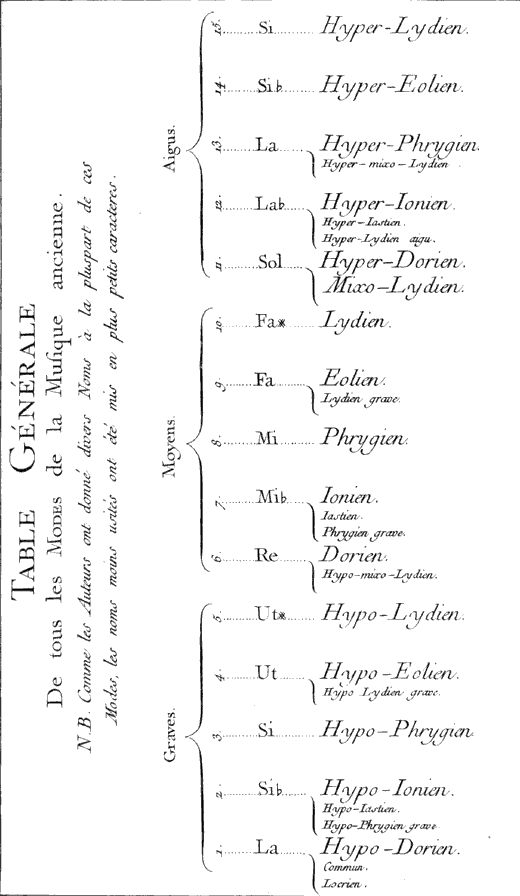 TABLE GÉNÉRALE
De tous les MODES de la Musique ancienne.
N.B. Comme les Auteurs ont donné divers Noms à la pluspart de ces
Modes, les noms moins usités ont été mis en plus petits caracteres.
Aigus.
15. Si Hyper-Lydien.
14. Sib Hyper-Eolien.
13. La Hyper-Phrygien.
Hyper-mixo-Lydien.
12. Lab Hyper-Ionien.
Hyper-Iastien.
Hyper-Lydien aigu.
11. Sol Hyper-Dorien.
Mixo-Lydien.
Moyens.
10. Fa* Lydien.
9. Fa Eolien.
Lydien grave.
8. Mi Phrygien.
7. Mib Ionien.
Iastien.
Phrygien grave.
6. Re Dorien.
Hypo-mixo-Lydien.
Graves.
5. Ut* Hypo-Lydien.
4. Ut Hypo-Eolien.
Hypo Lydien grave.
3. Si Hypo-Phrygien
2. Sib Hypo-Ionien.
Hypo-Iastien.
Hypo-Phrygien grave
1. La Hypo-Dorien.
Commun.
Locrien.